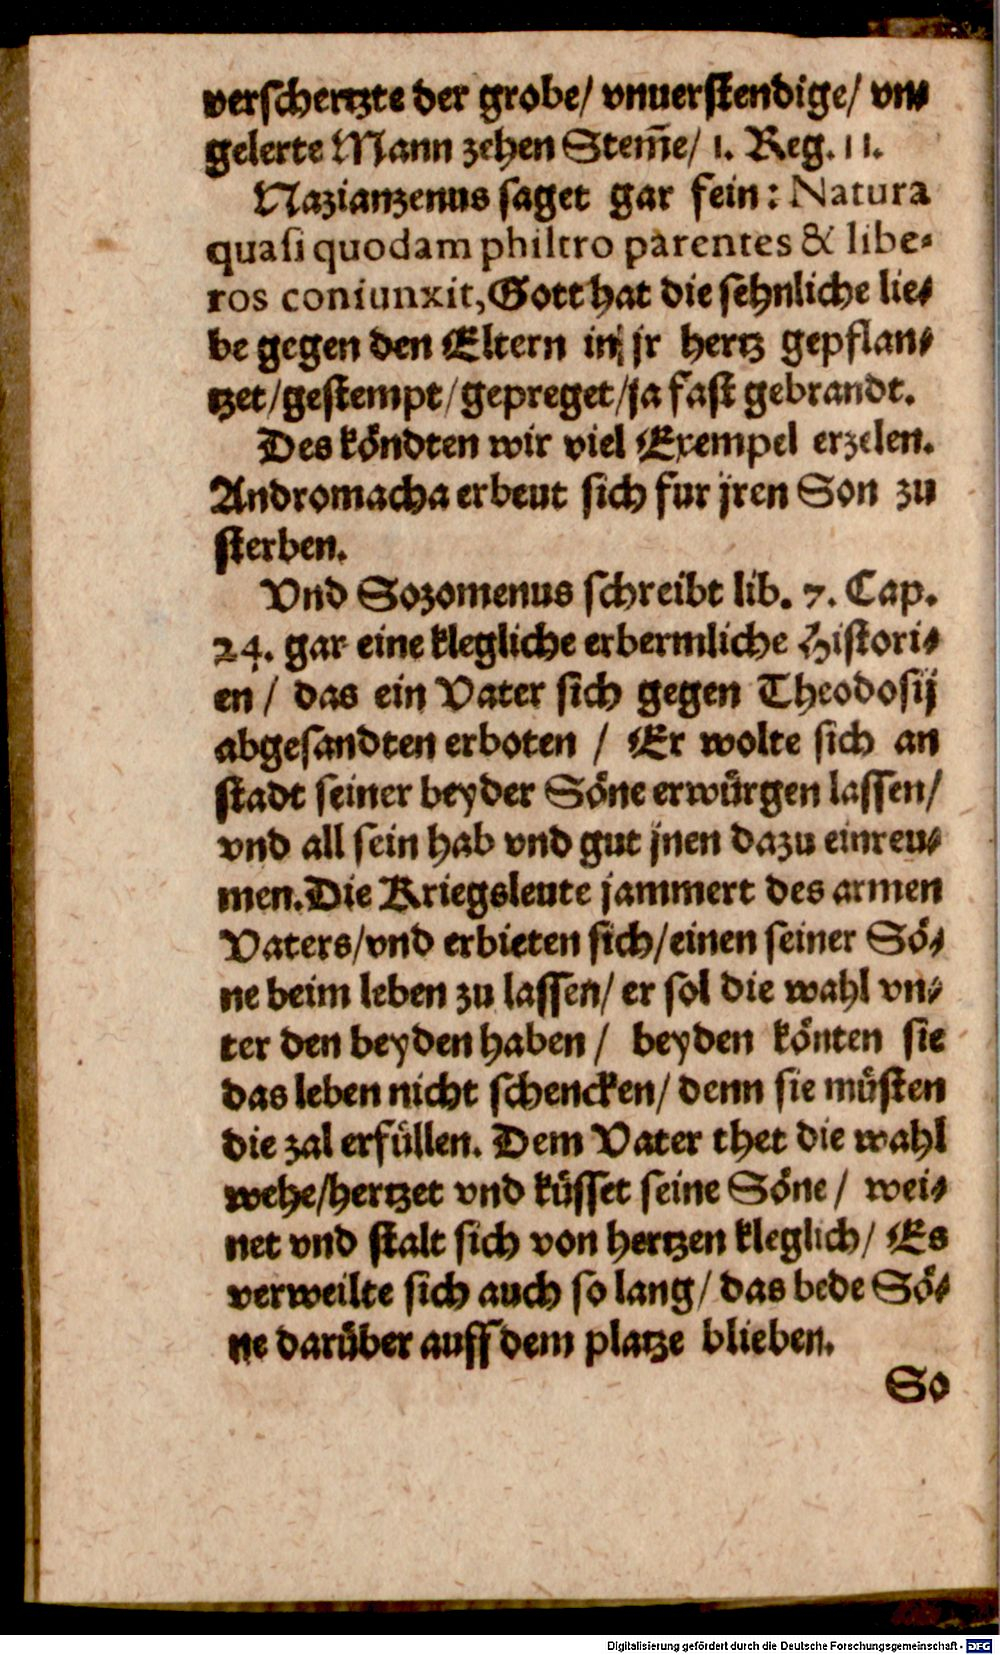 verschertzte der grobe/ vnuerstendige/ vn-
gelerte Mann zehen Stem̃e/ 1. Reg. 11.
Nazianzenus saget gar fein: Natura
quasi quodam philtro parentes & libe-
ros coniunxit, Gott hat die sehnliche lie-
be gegen den Eltern in jr hertz gepflan-
tzet/gestempt/gepreget/ja fast gebrandt.
Des köndten wir viel Exempel erzelen.
Andromacha erbeut sich fur jren Son zu
sterben.
Vnd Sozomenus schreibt lib. 7. Cap.
24. gar eine klegliche erbermliche Histori-
en/ das ein Vater sich gegen Theodosij
abgesandten erboten / Er wolte sich an
stadt seiner beyder Söne erwürgen lassen/
vnd all sein hab vnd gut jnen dazu einreu-
men. Die Kriegsleute jammert des armen
Vaters/vnd erbieten sich/einen seiner Sö-
ne beim leben zu lassen/ er sol die wahl vn-
ter den beyden haben/ beyden könten sie
das leben nicht schencken/ denn sie müsten
die zal erfüllen. Dem Vater thet die wahl
wehe/hertzet vnd küsset seine Söne/ wei-
net vnd stalt sich von hertzen kleglich/ Es
verweilte sich auch so lang/ das bede Sö-
ne darüber auff dem platze blieben.
So
Digitalisierung gefördert durch die Deutsche Forschungsgemeinschaft - DFG